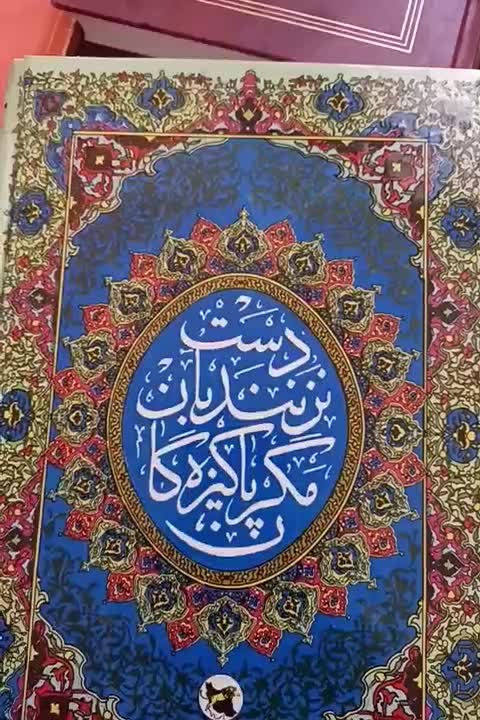 دست
نزنند بآن
مگر پاکیزه گا
ن